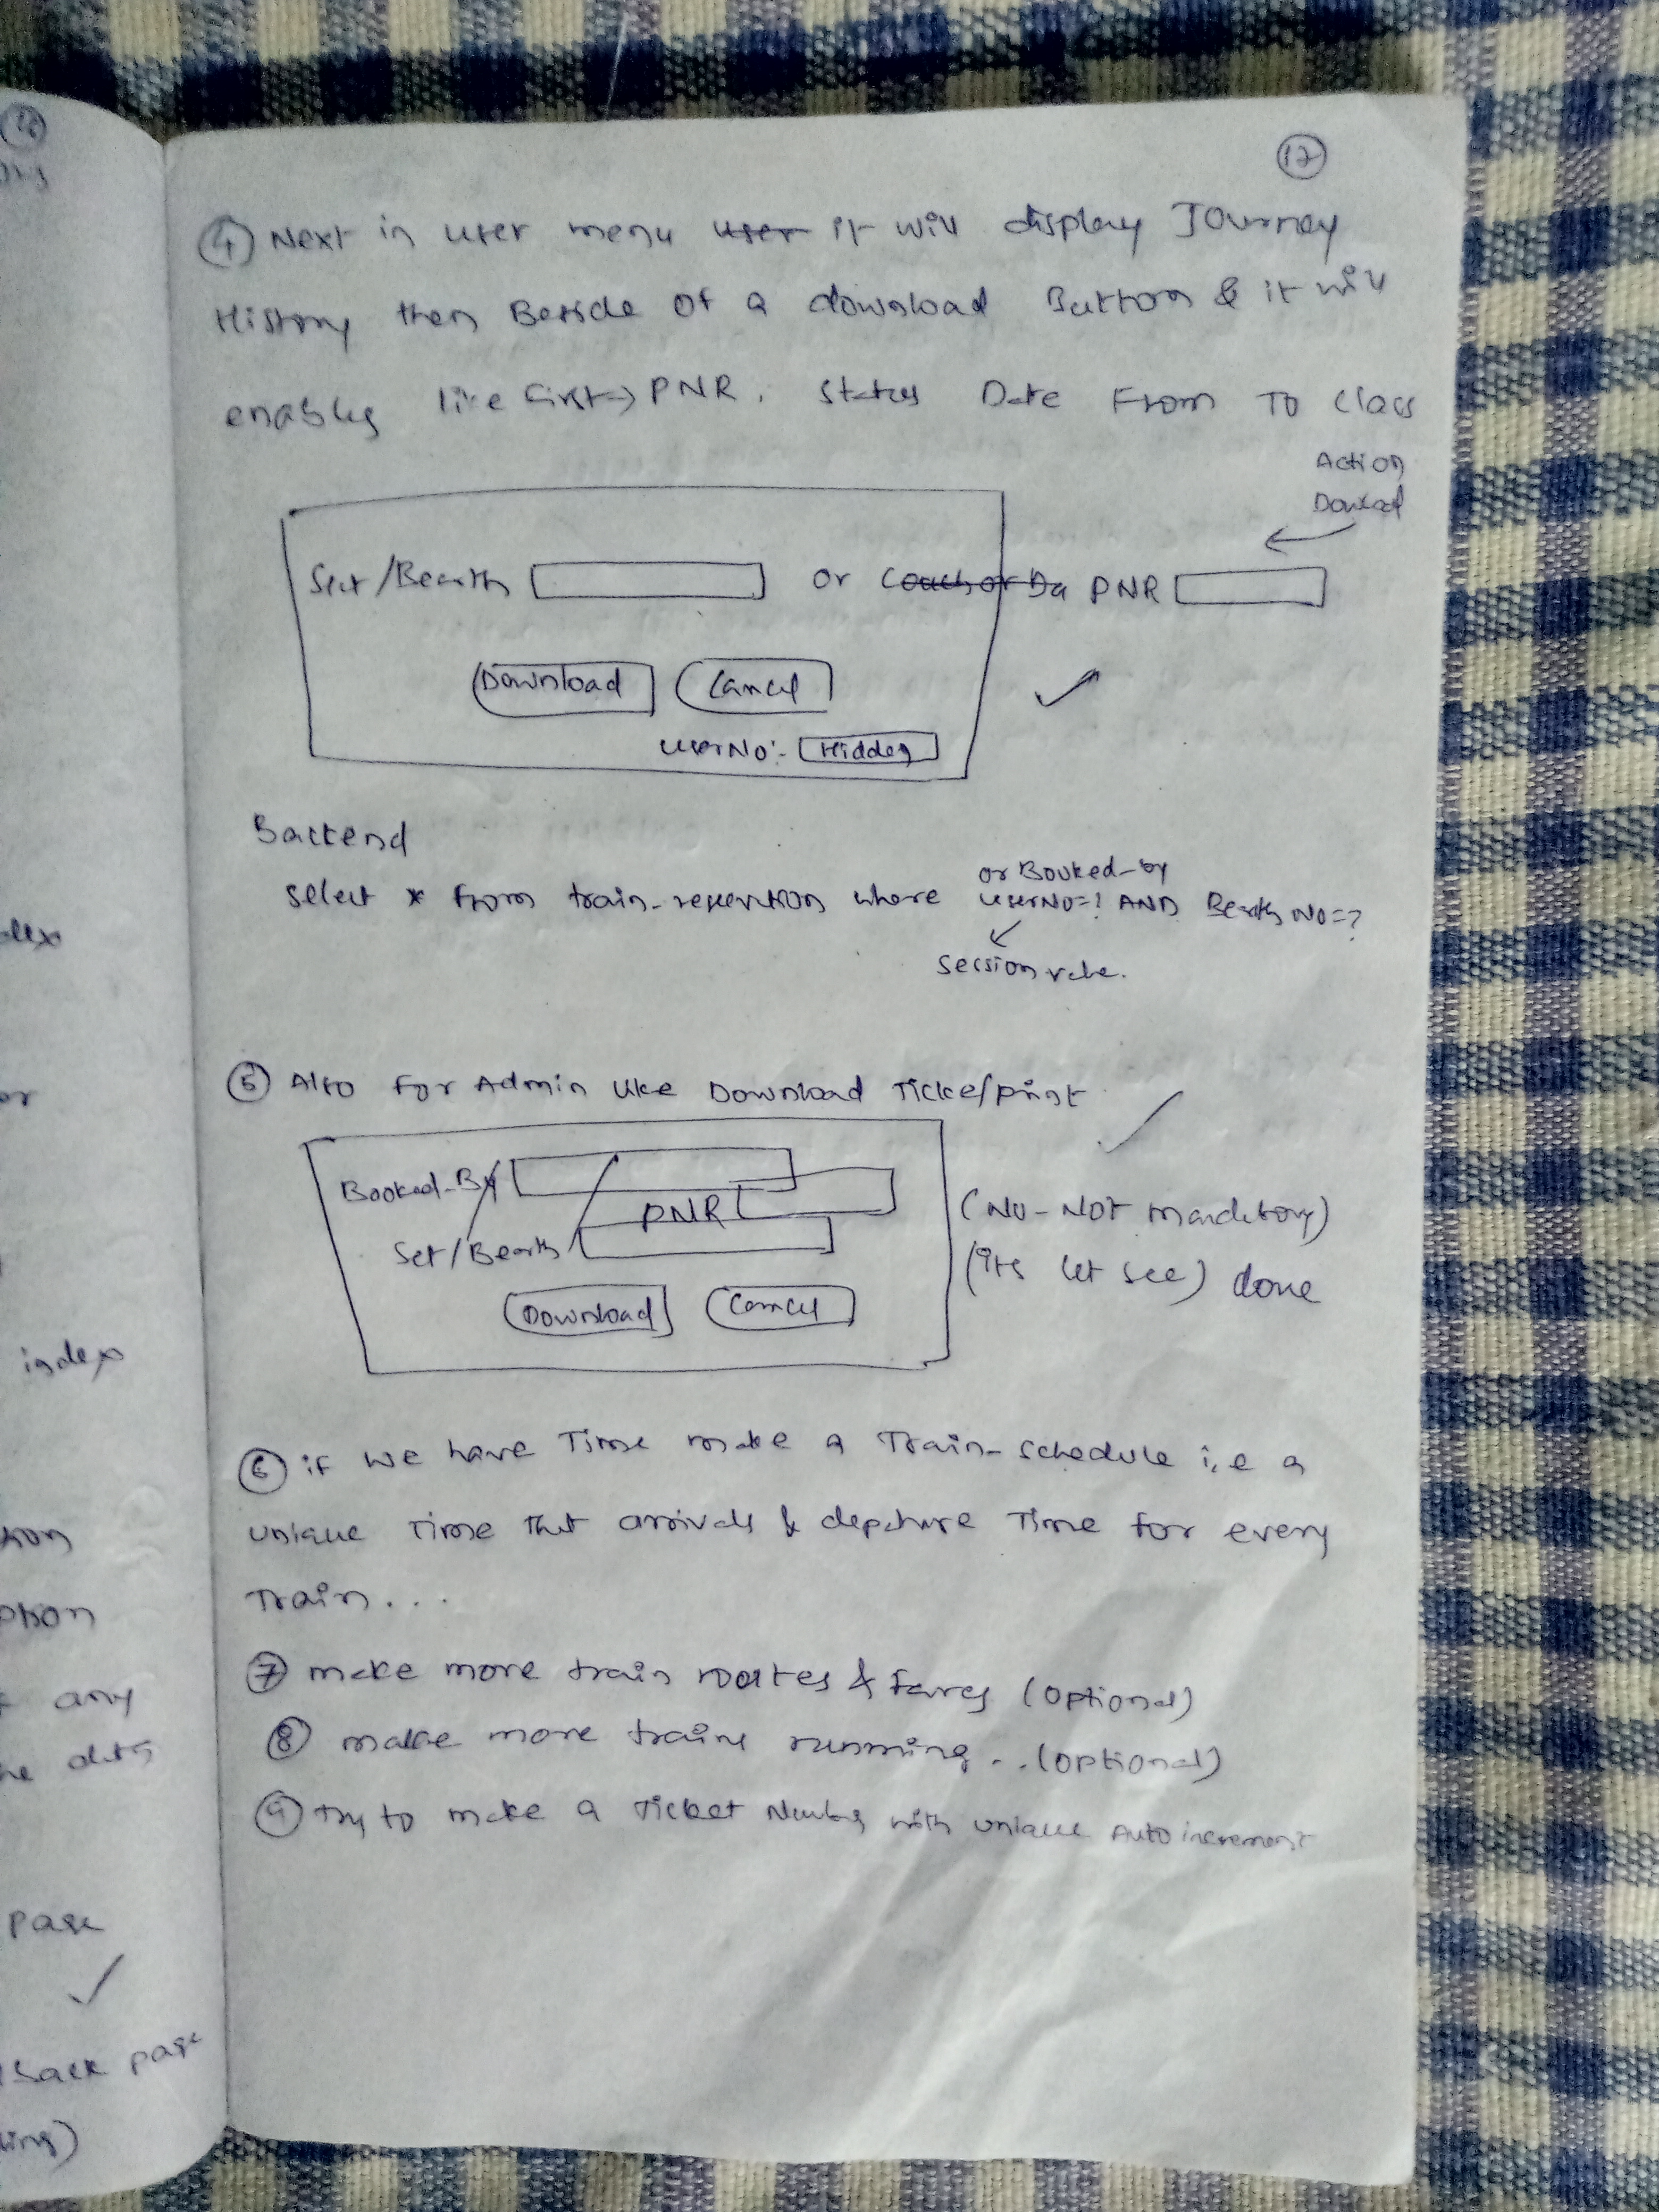 16
17
4 Next in user menu user it will display Journey
History then Beside of a download Button & it will
enables like first → PNR, Status Date From To Class
Action
Download
Set/Bearth or Couch or Da PNR
Download Cancel
userNo:- Hidden
Backend
or Booked-by
select * from train-reservation where userNo=? AND Bearth No=?
session value.
5 Also For Admin like Download Ticke/print
Booked-By
PNR
(No-NOT mandatory)
Set/Bearth
(its let see) done
Download Cancel
6 if we have Time make a Train-schedule i.e a
unique Time that arrivals & departure Time for every
Train...
7 make more train routes & fares (optional)
8 make more trains running.. (optional)
9 Try to make a Ticket Number with unique Auto increment
dex
or
index
any
page
Back page